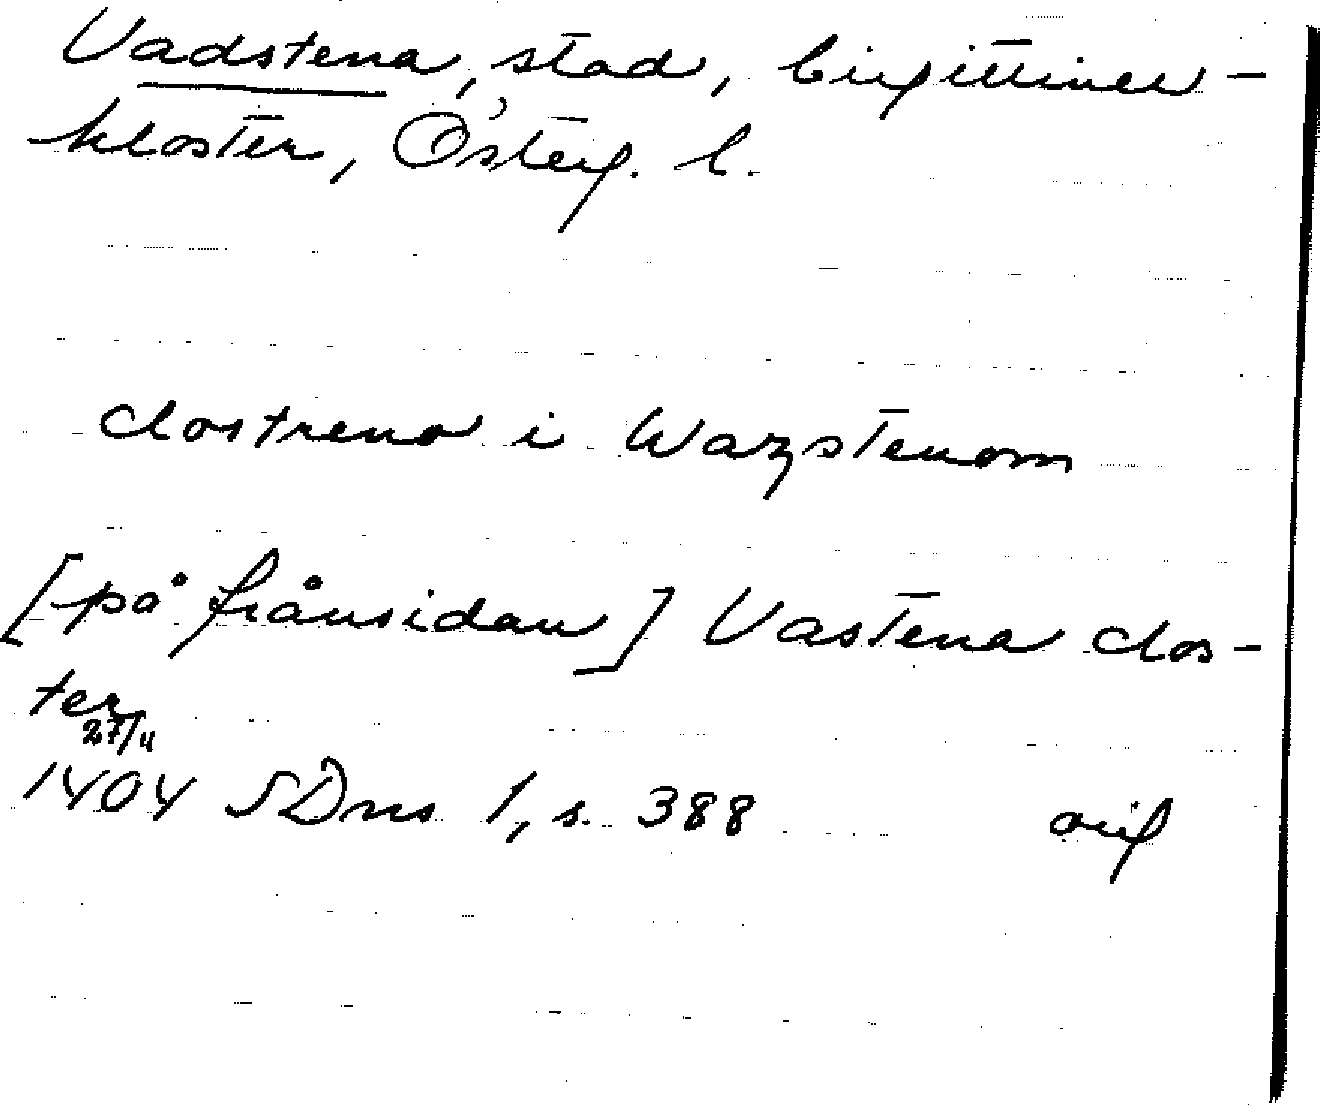 Vadstena, stad, birgittiner-
kloster, Österg. l.
clostreno i Wazstenom
[på frånsidan] Vastena clos-
ter
27/4
1404 SDns 1, s. 388 orig